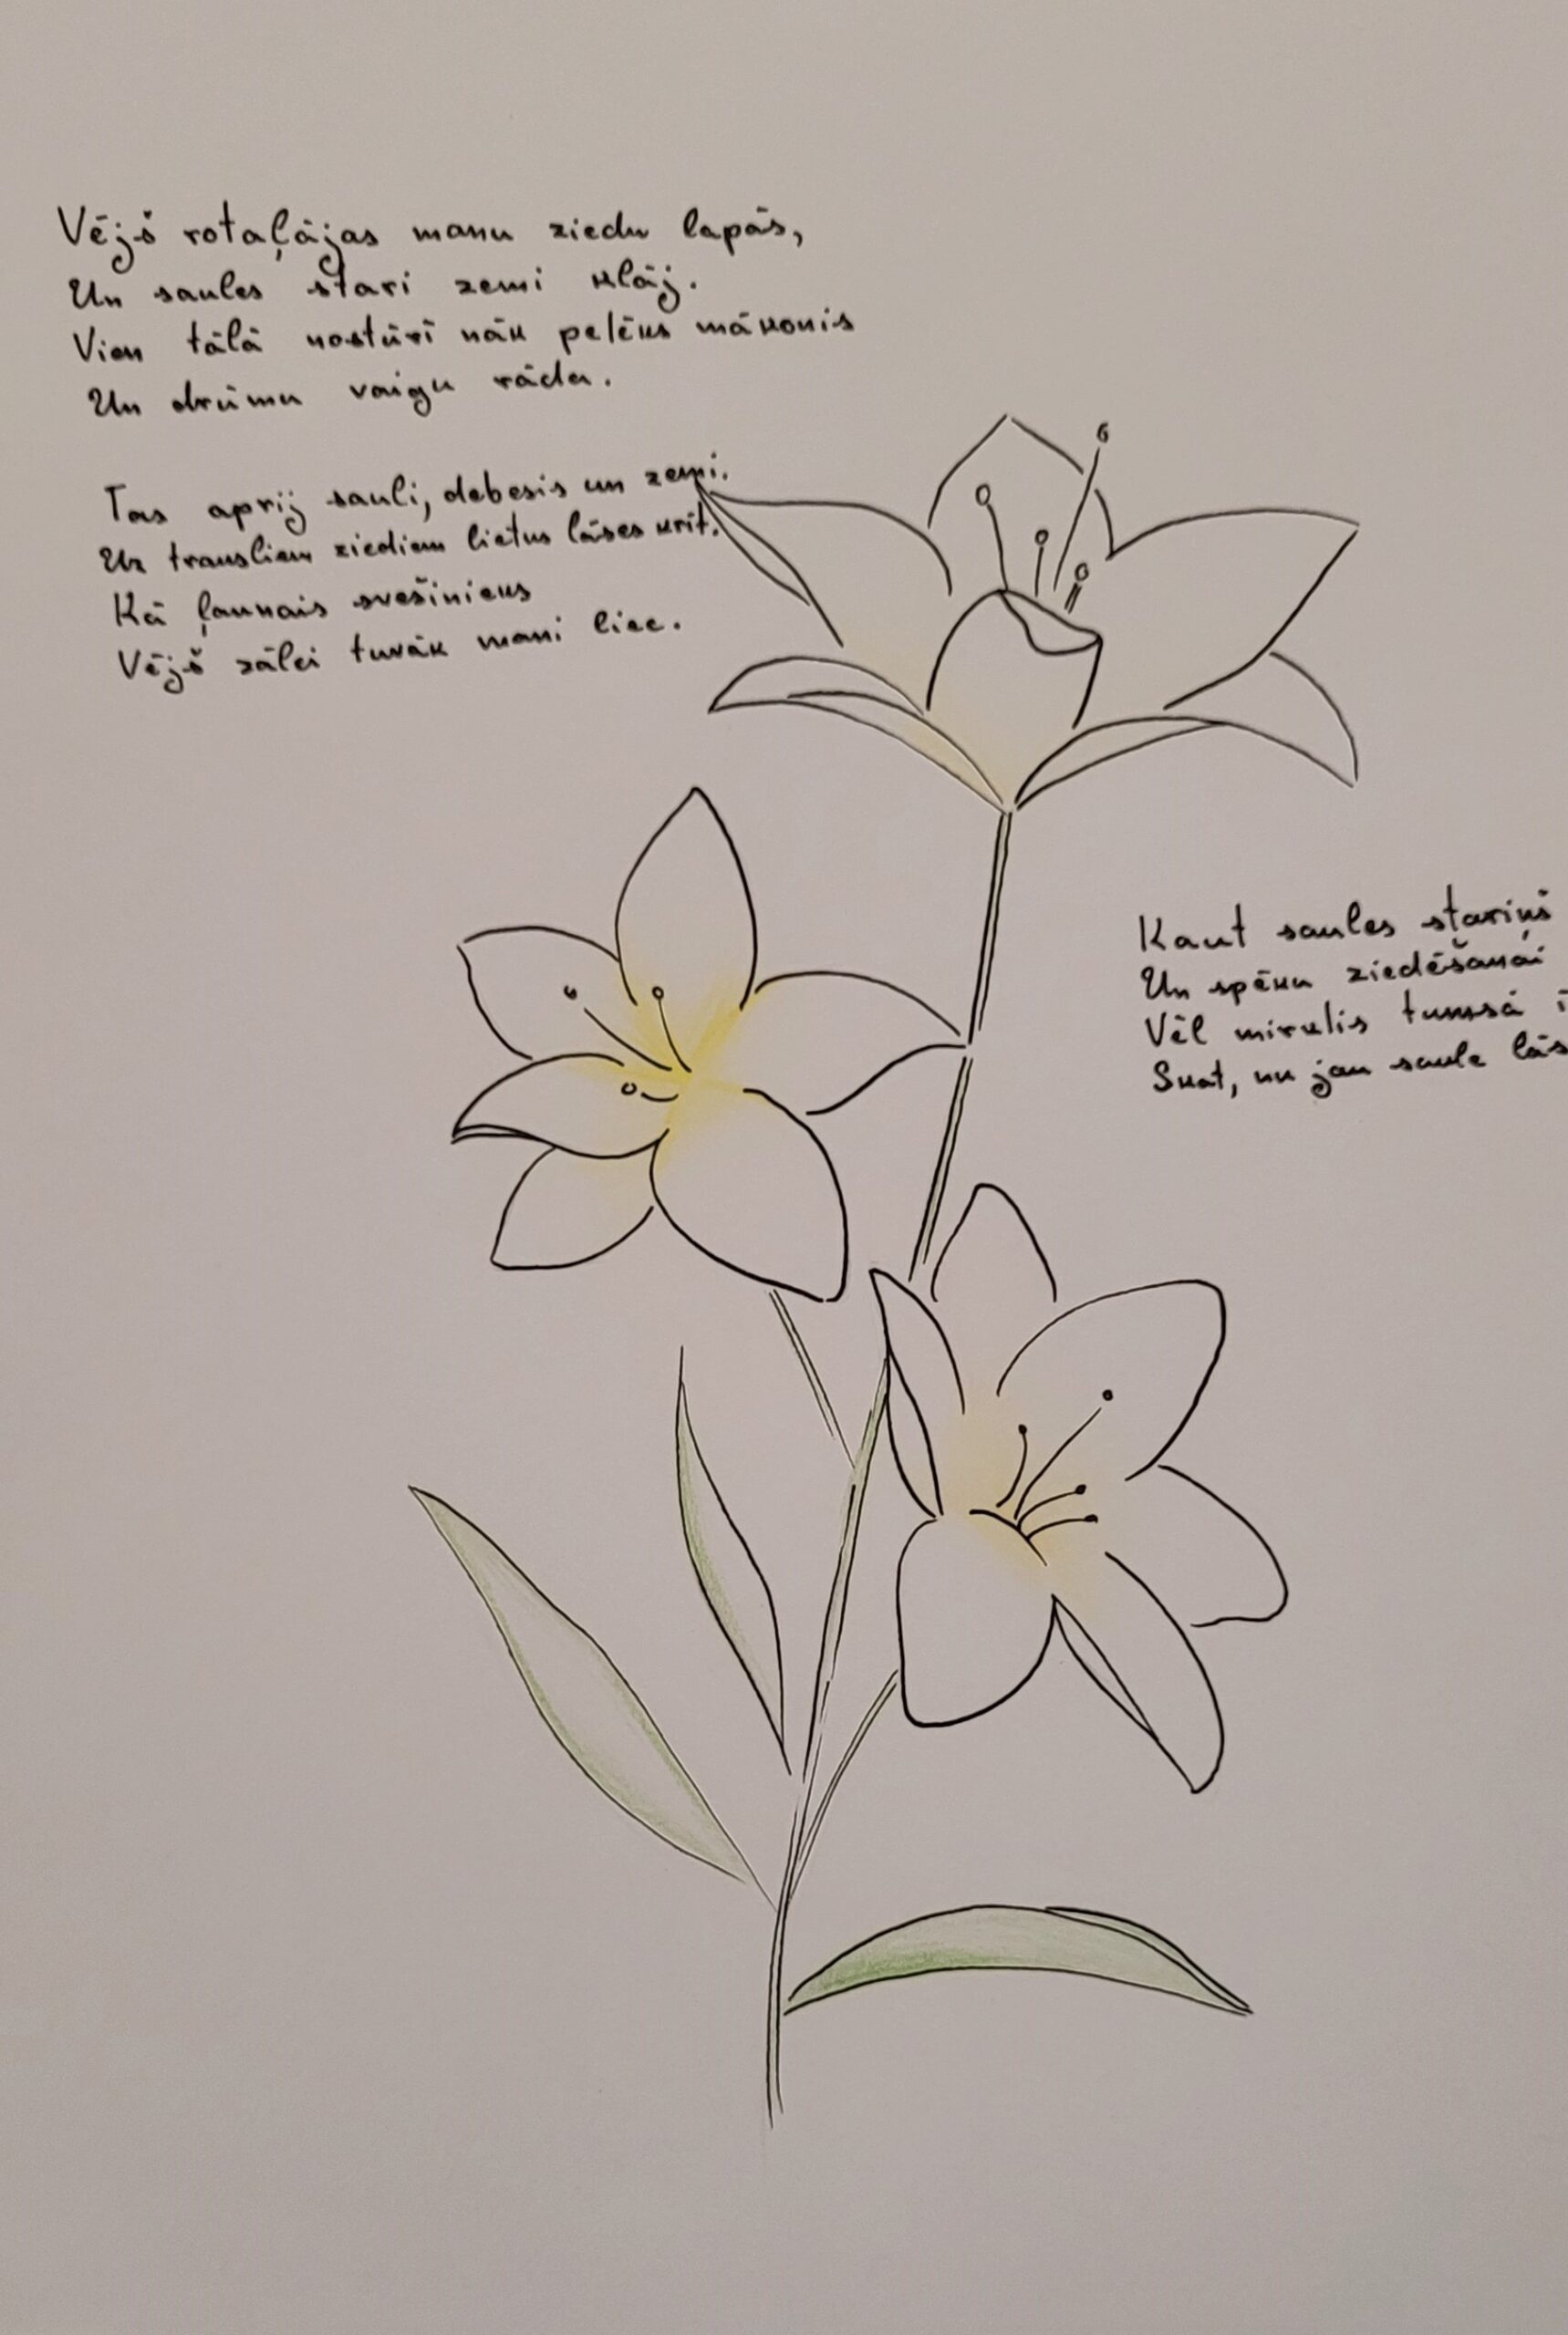 Vējš rotaļājas manu ziedu lapās,
Un saules stari zemi klāj.
Vien tālā nostūrī nāk pelēks mākonis
Un drūmu vaigu rāda.
Tas aprij sauli, debesis un zemi.
Uz trausliem ziediem lietus lāses krīt.
Kā ļaunais svešinieks
Vējš zālei tuvāk mani liec.
Kaut saules stariņš
Un spēku ziedēšanai
Vēl mirklis tumsā
Skat, nu jau saule